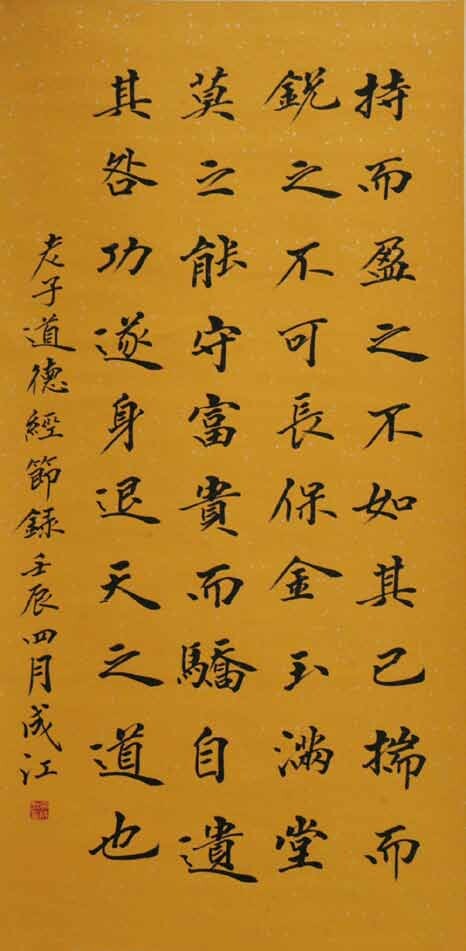 持而盈之不如其已揣而
銳之不可長保金玉滿堂
莫之能守富貴而驕自遺
其咎功遂身退天之道也
老子道德經節錄壬辰四月成江